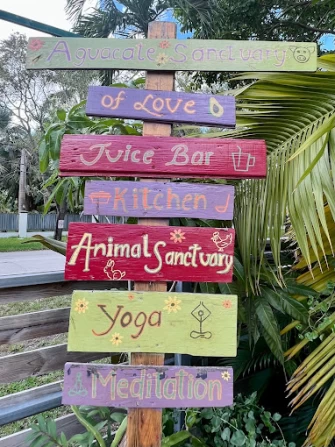 Aguacate Sanctuary
of Love
Juice Bar
Kitchen
Animal Sanctuary
Yoga
Meditation